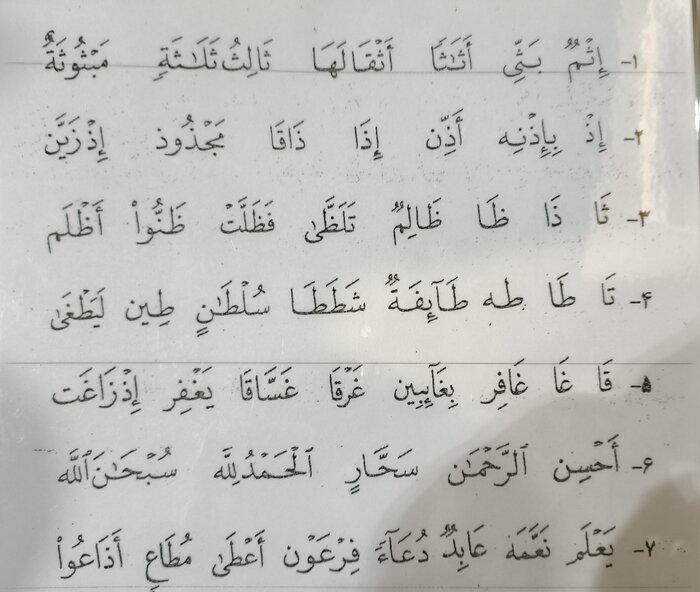 ۱- إِثْمٌ بَثِّى أَثَاثًا أَثْقَالَهَا ثَالِثُ ثَلَاثَةٍ مَبْثُوثَةٌ
۲- إِذْ بِإِذْنِه أَذِّن إِذَا ذَاقَا مَجْذُوذ إِذْزَيَّن
۳- ثَا ذَا ظَا ظَالِمٌ تَلَظَّىٰ فَظَلَّتْ ظَنُّواْ أَظْلَم
۴- تَا طَا طه طَآئِفَةٌ شَطَطَا سُلْطَٰنٍ طِين لَيَطْغَىٰ
۵- قَا غَا غَافِر بِغَآئِبِين غَرْقَا غَسَّاقَا يَغْفِر إِذْزَاغَت
۶- أَحْسِن ٱلرَّحْمَٰن سَحَّارٍ ٱلْحَمْدُلِلَّه سُبْحَٰنَ‌ٱللَّه
۷- يَعْلَم نَعَّمَه عَابِدٌ دُعَآءَ فِرْعَوْن أَعْطَىٰ مُطَاعٍ أَذَاعُواْ